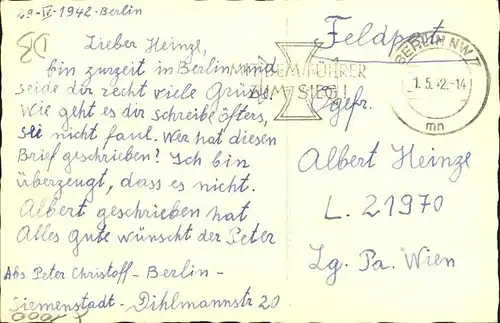 29-IV-1942-Berlin
Lieber Heinze,
bin zurzeit in Berlin und
seide dir recht viele Grüße.
Wie geht es dir schreibe öfters,
sei nicht faul. Wer hat diesen
Brief geschrieben? Ich bin
überzeugt, dass es nicht.
Albert geschrieben hat
Alles gute wünscht der Peter
Abs Peter Christoff - Berlin -
Siemenstadt - Dihlmannstr 20
Feldpost
MIT DEM FÜHRER
ZUM SIEG!
BERLIN NW 7
1.5.42.-14
mn
Ogefr.
Albert Heinze
L. 21970
Lg. Pa. Wien